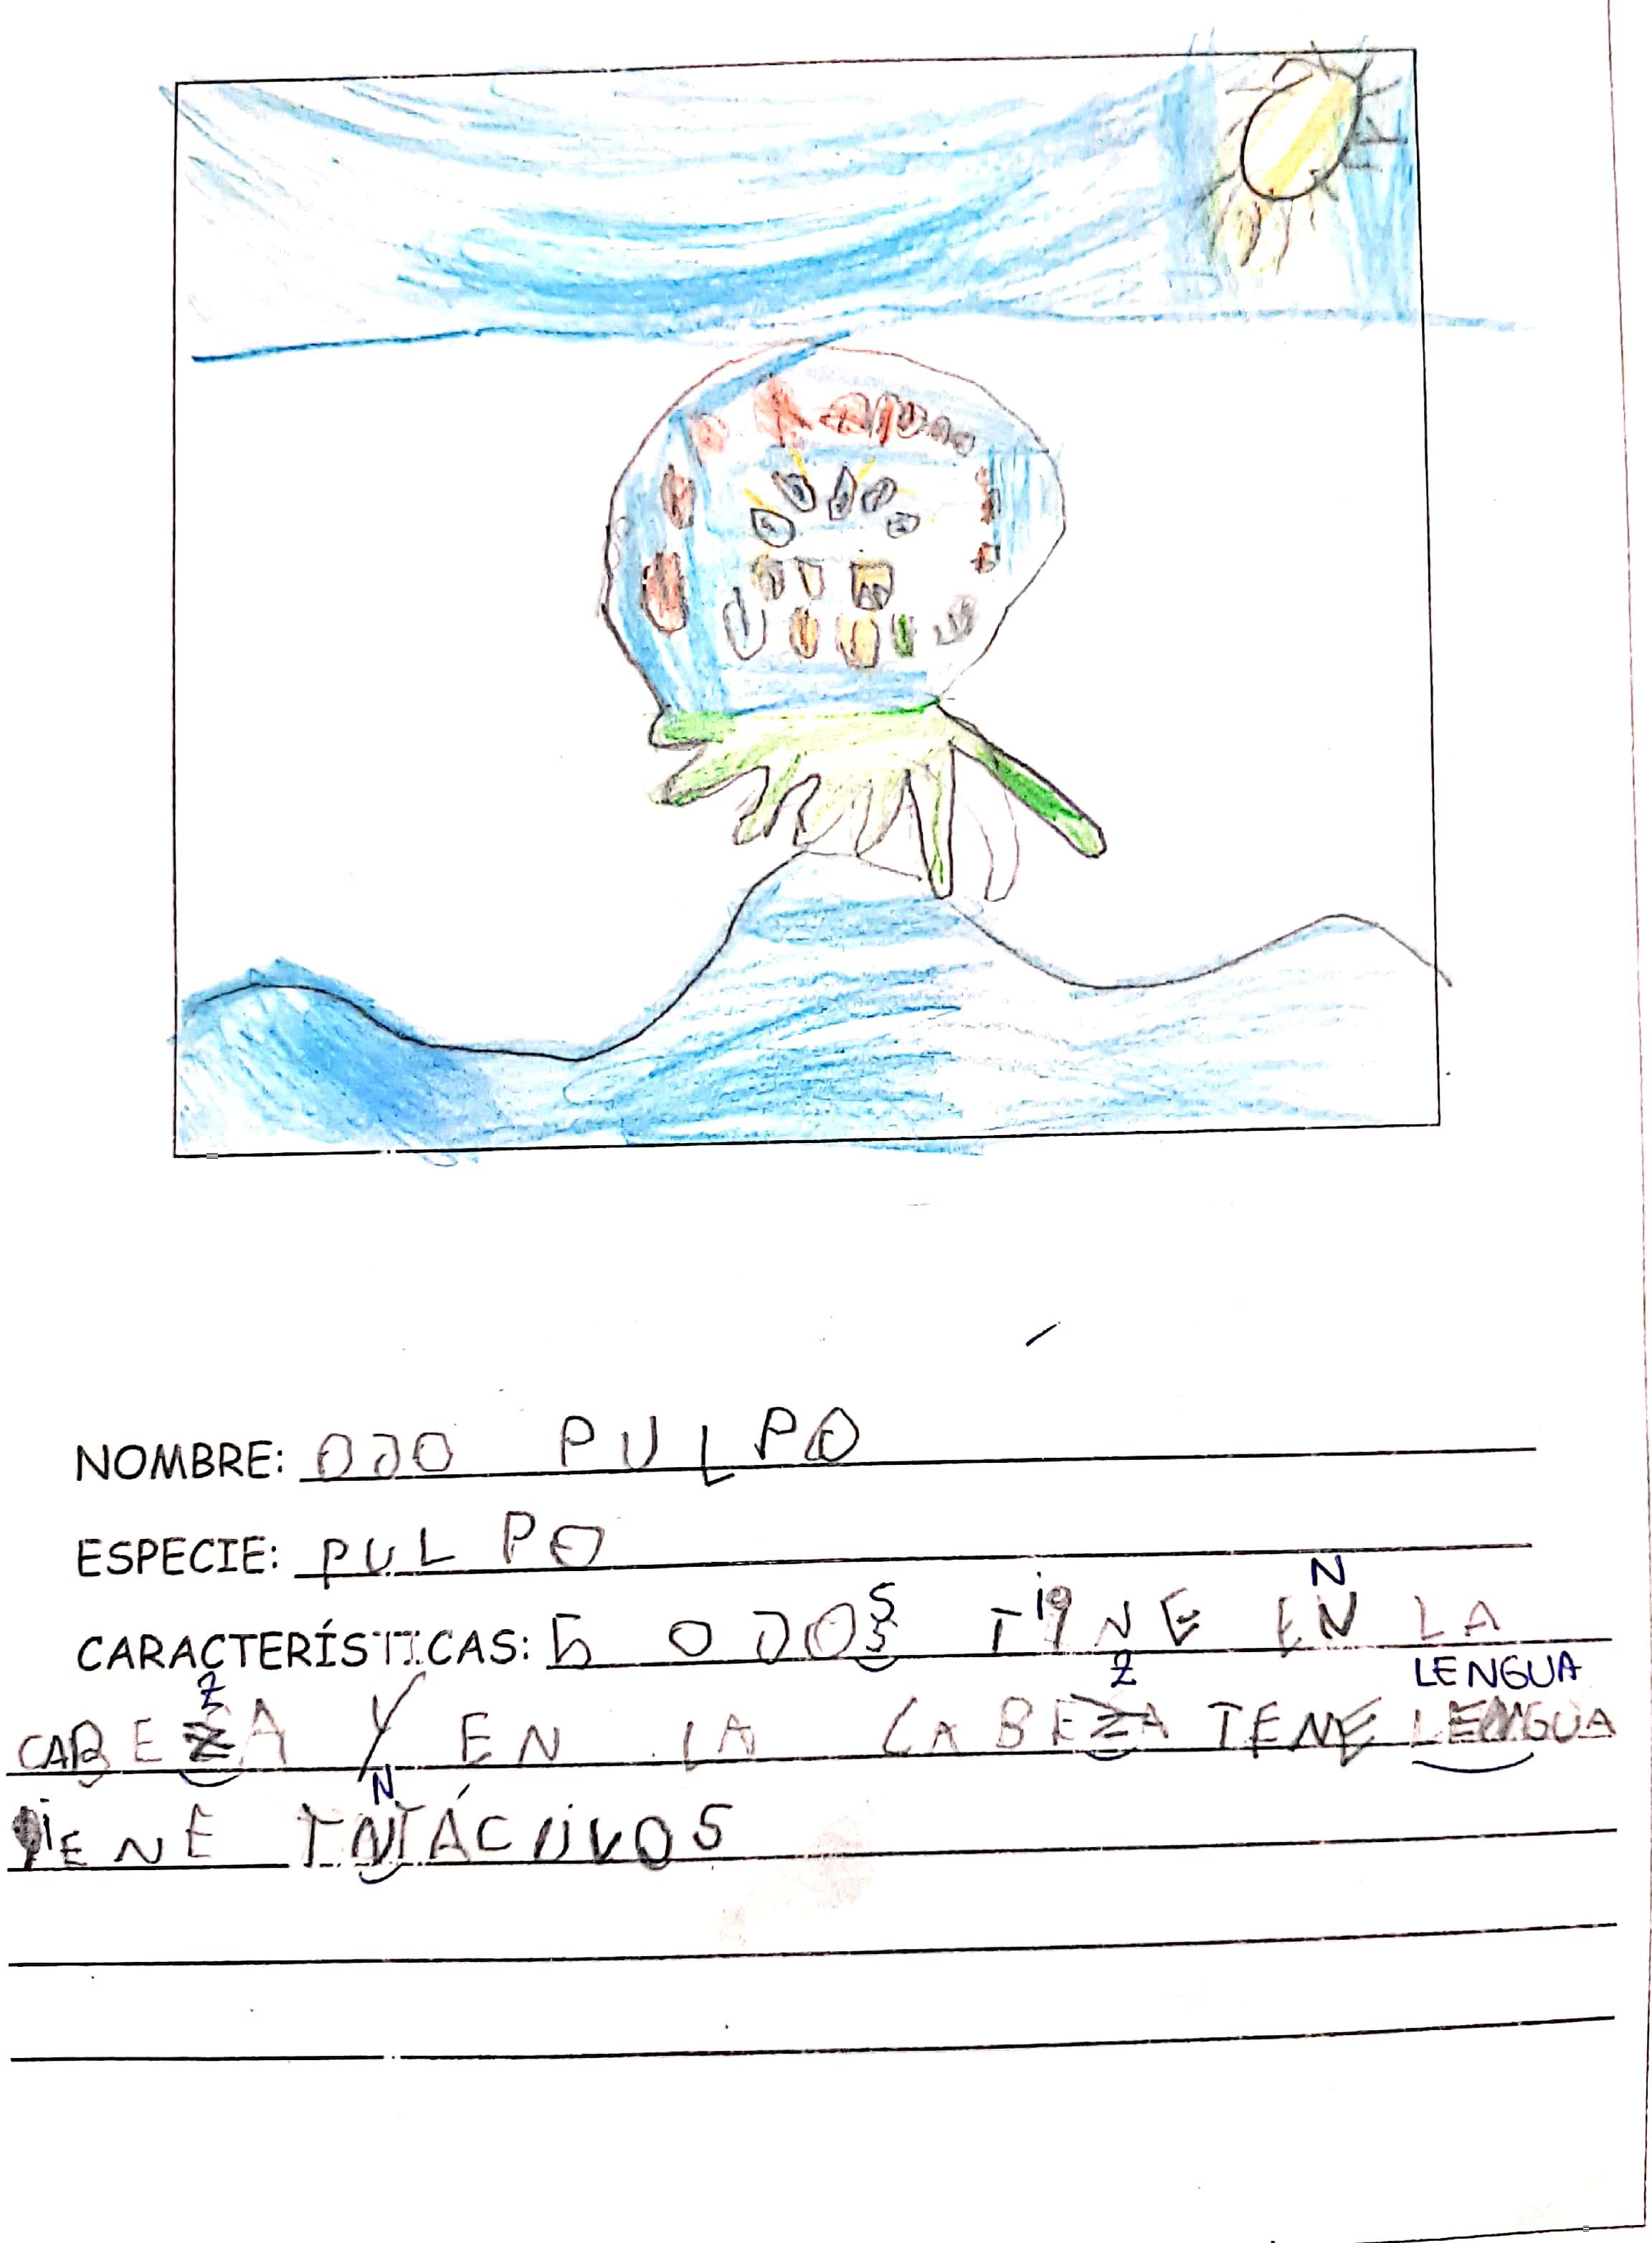 NOMBRE: OJO PULPO
ESPECIE: PULPO
N
CARACTERÍSTICAS: 5 OJOS TIENE EN LA
Z Z LENGUA
CABEZA Y EN LA CABEZA TENE LENGUA
N
TIENE TNTÁCUVOS